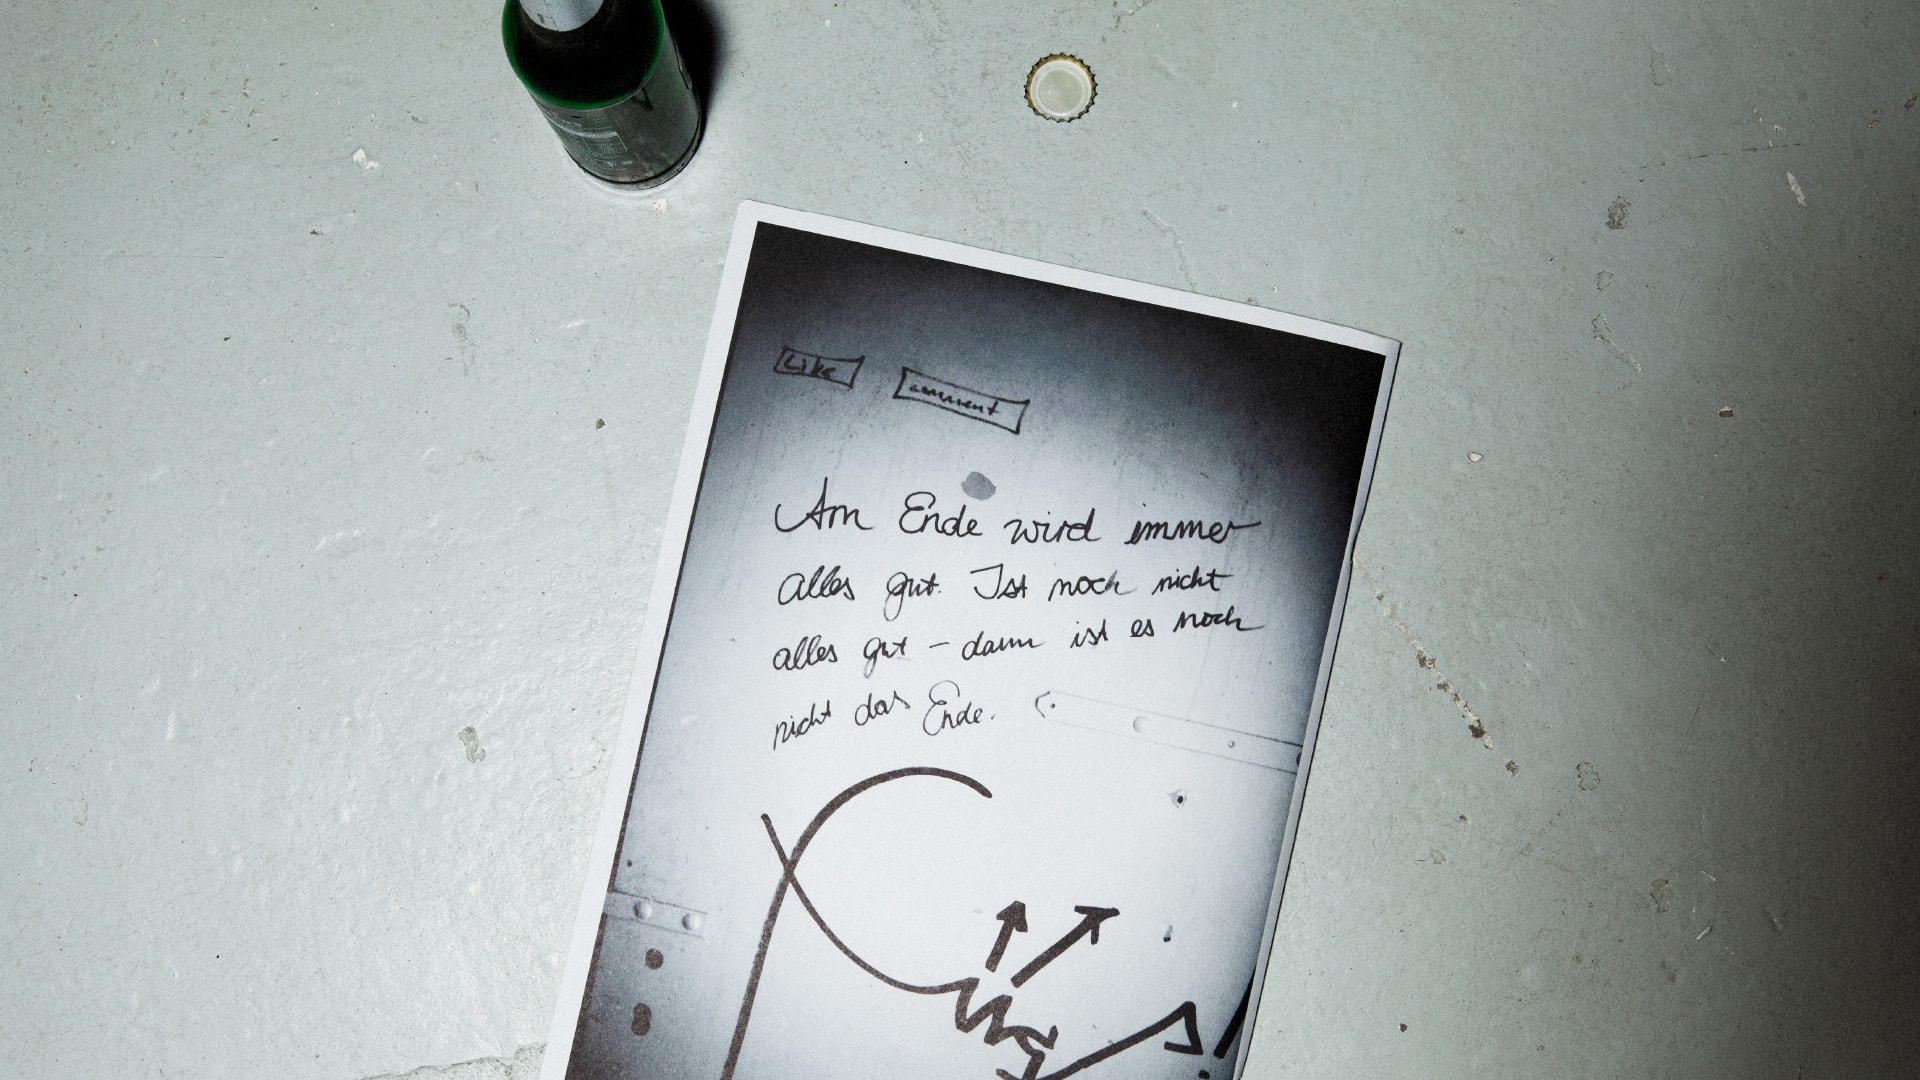 Like comment
Am Ende wird immer
alles gut. Ist noch nicht
alles gut – dann ist es noch
nicht das Ende.